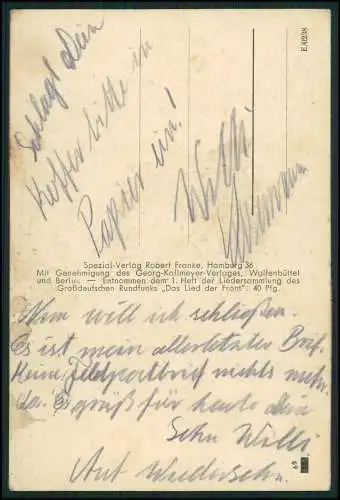 Schlagt Dein
Koffer bitte in
Papier ein!
Willi
E. 0228
Spezial-Verlag Robert Franke, Hamburg 36
Mit Genehmigung des Georg-Kallmeyer-Verlages, Wolfenbüttel
und Berlin. — Entnommen dem 1. Heft der Liedersammlung des
Großdeutschen Rundfunks „Das Lied der Front". 40 Pfg.
Nun will ich schließen.
Es ist mein allerletzter Brief.
Kein Feldpostbrief nichts mehr
da. Es grüß für heute Dein
Sohn Willi
Auf Wiedersehn.